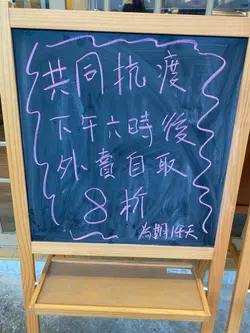 共同抗渡
下午六時後
外賣自取
8折
為期14天